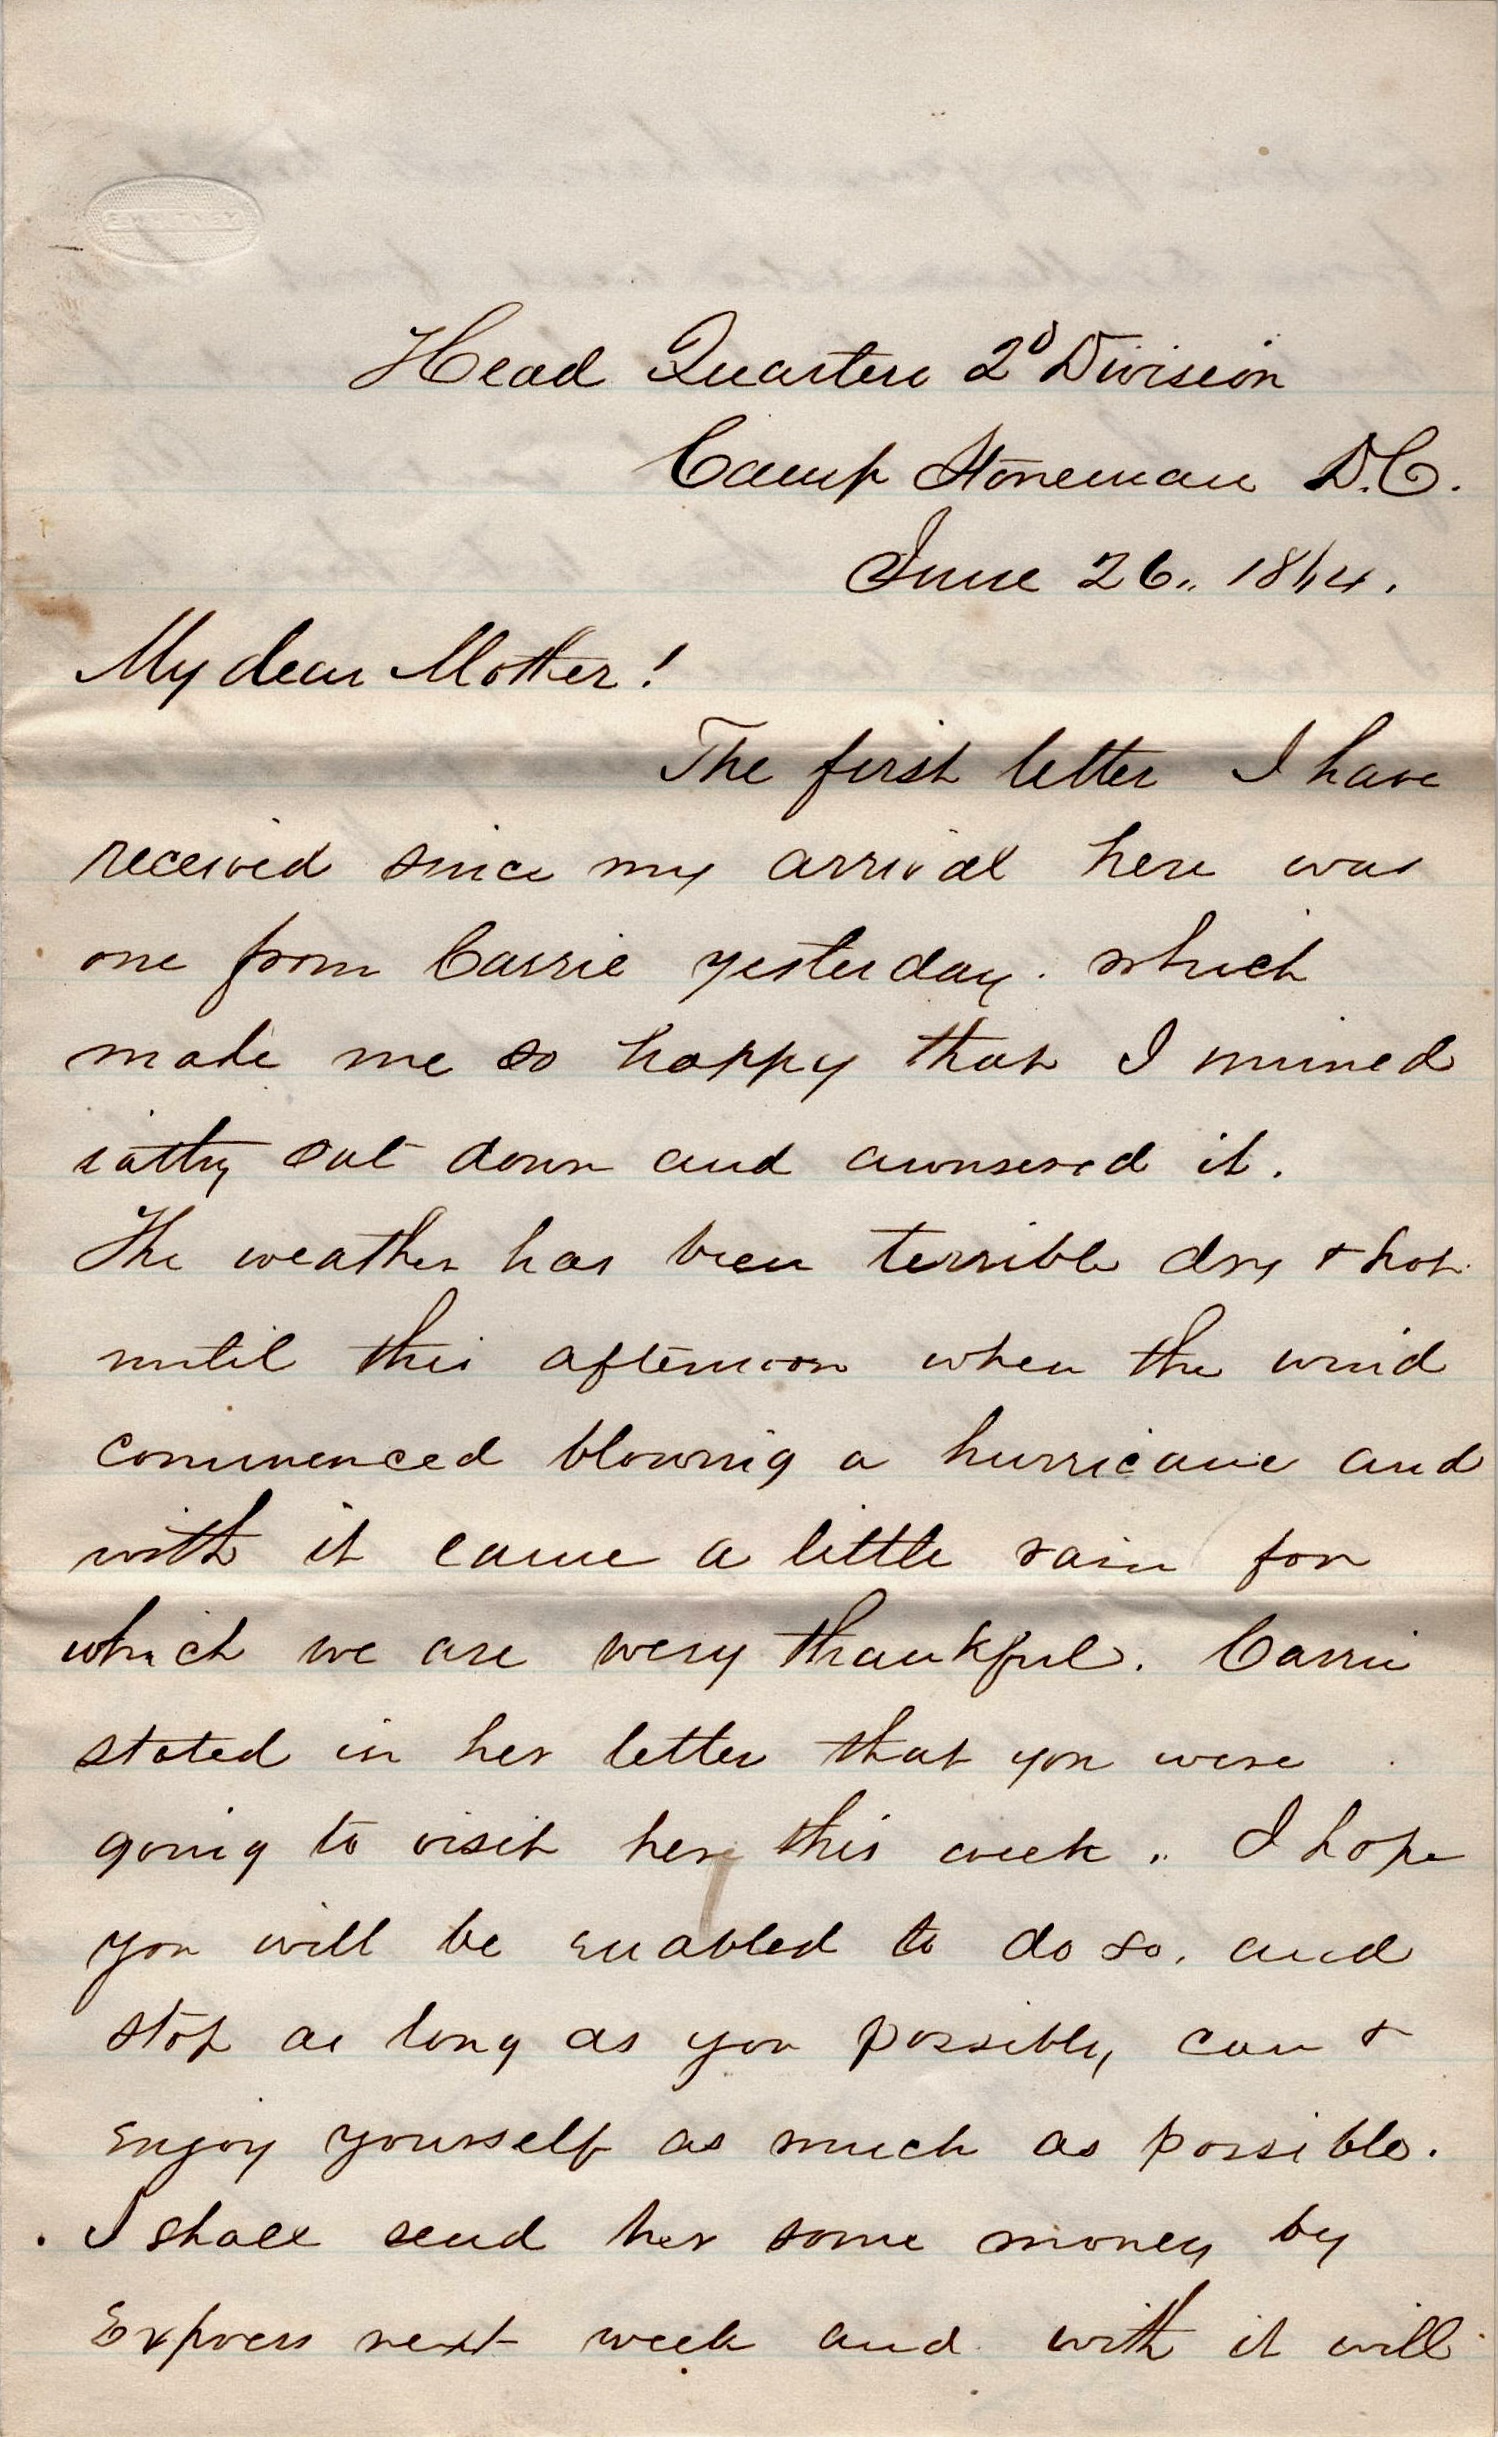 Head Quarters 2d Division
Camp Stoneman D.C.
June 26.. 1864.
My dear Mother!
The first letter I have
received since my arrival here was
one from Carrie yesterday. which
made me so happy that I mined
iatly sat down and awnsered it.
The weather has been terrible dry & hot
until this afternoon when the wind
commenced blowing a hurricane and
with it came a little rain for
which we are wery thankful. Carrie
stated in her letter that you were
going to visit her this week .. I hope
you will be enabled to do so. and
stop as long as you possibly can &
enjoy yourself as much as possible.
I shall send her some money by
Express next week and with it will